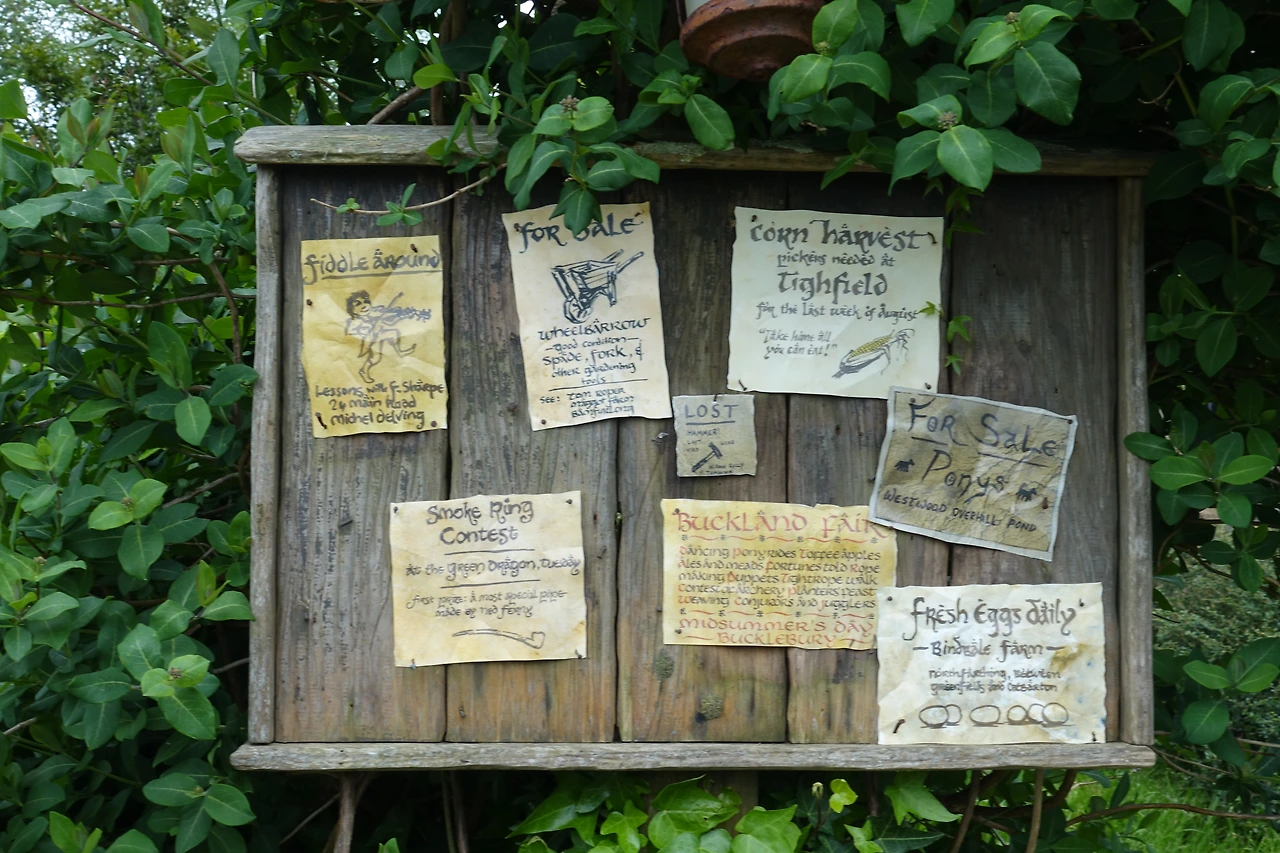 Fiddle Around
Lessons with F. Sharpe
24 Main Road
Michel Delving
For Sale
Wheelbarrow
good condition
Spade, Fork, &
other gardening
tools
See: Tom Roper
Corn Harvest
pickers needed at
Tighfield
for the last week of August
"Take home all
you can eat!"
LOST
HAMMER!
For Sale
Ponys
WESTWOOD OVERHILL POND
Smoke Ring
Contest
At the Green Dragon, Tuesday
first prize: a most special pipe
made by Ned Ferny
Buckland Fair
Dancing Pony Rides Toffee Apples
Ales and Meads Fortunes Told Rope
Making Puppets Tightrope Walk
Contest of Archery Planters Feast
Weaving Conjurors and Jugglers
Midsummer's Day
Bucklebury
Fresh Eggs Daily
Bindbale Farm